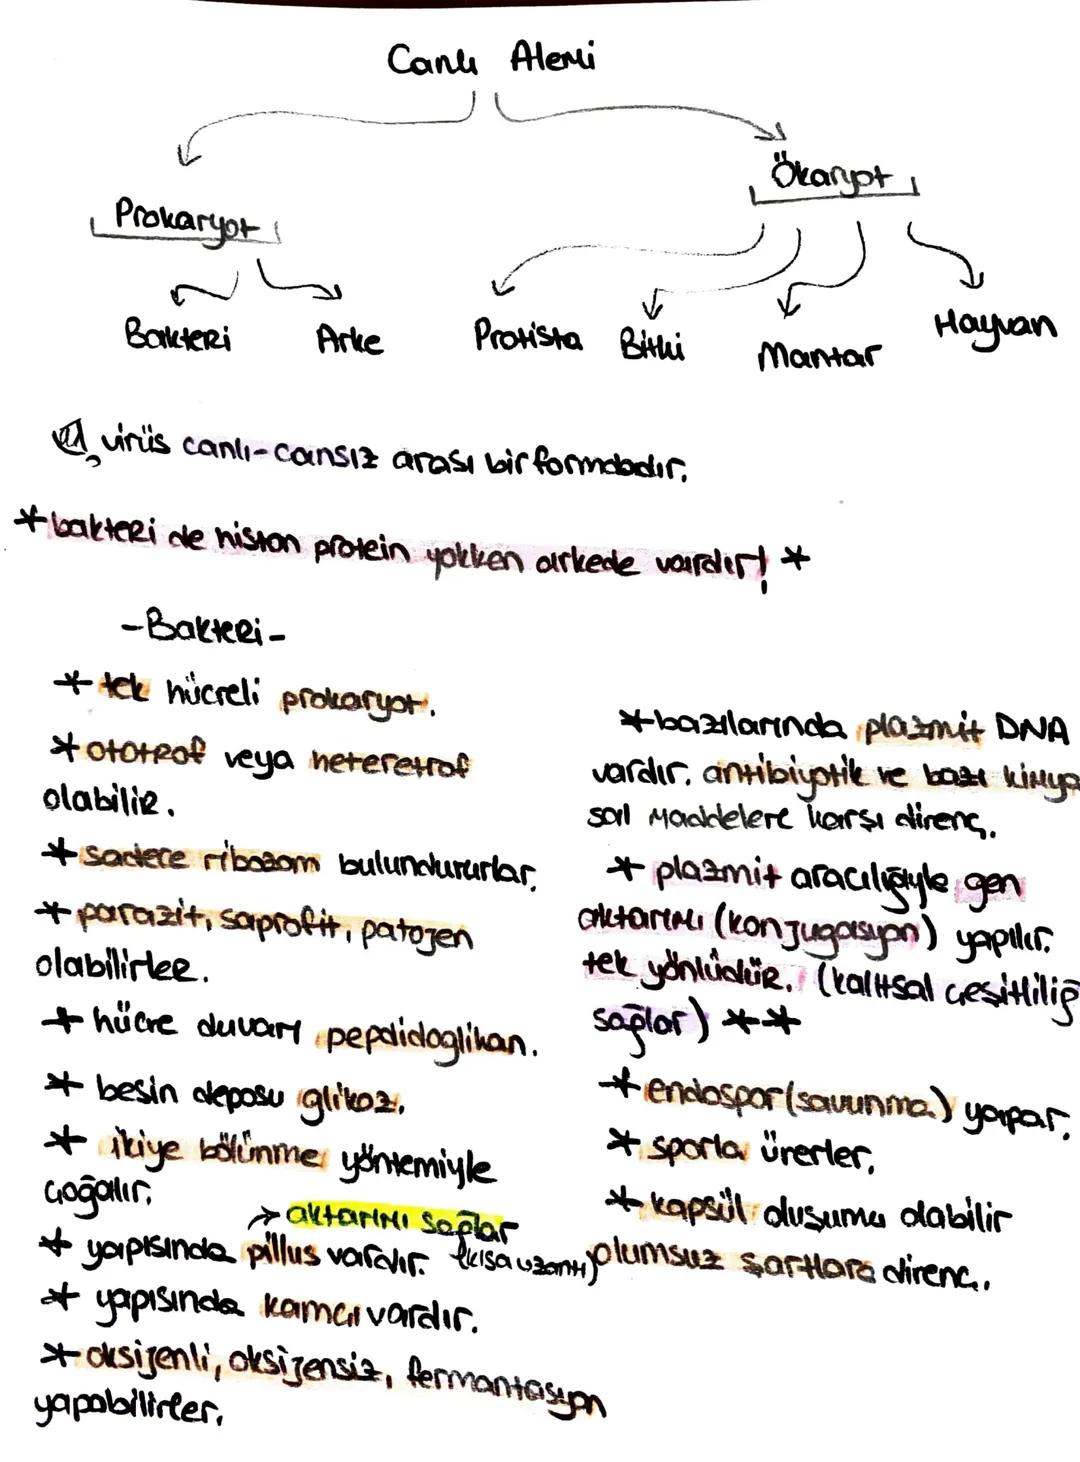 Canlı Alemi
Ökaryot
Prokaryot
Bakteri Arke Protista Bitki Mantar Hayvan
virüs canlı-cansız arası bir formdadır.
*bakteri de histon protein yokken arkede vardır! *
-Bakteri-
* tek hücreli prokaryot.
* ototrof veya heteretrof
olabilir.
* sadece ribozom bulundururlar.
* parazit, saprofit, patojen
olabilirler.
* hücre duvarı pepdidoglikan.
* besin deposu glikoz.
* ikiye bölünme yöntemiyle
çoğalır.
→ aktarımı sağlar
* yapısında pillus vardır. (kısa uzantı)
* yapısında kamçı vardır.
* oksijenli, oksijensiz, fermantasyon
yapabilirler.
*bazılarında plazmit DNA
vardır. antibiyotik ve bazı kimya
sal maddelere karşı direnç.
* plazmit aracılığıyle gen
aktarımı (konjugasyon) yapılır.
tek yönlüdür. (kalıtsal çeşitliliğ
sağlar) **
* endospor (savunma) yapar.
* sporla ürerler.
* kapsül oluşumu olabilir
olumsuz şartlara direnç.